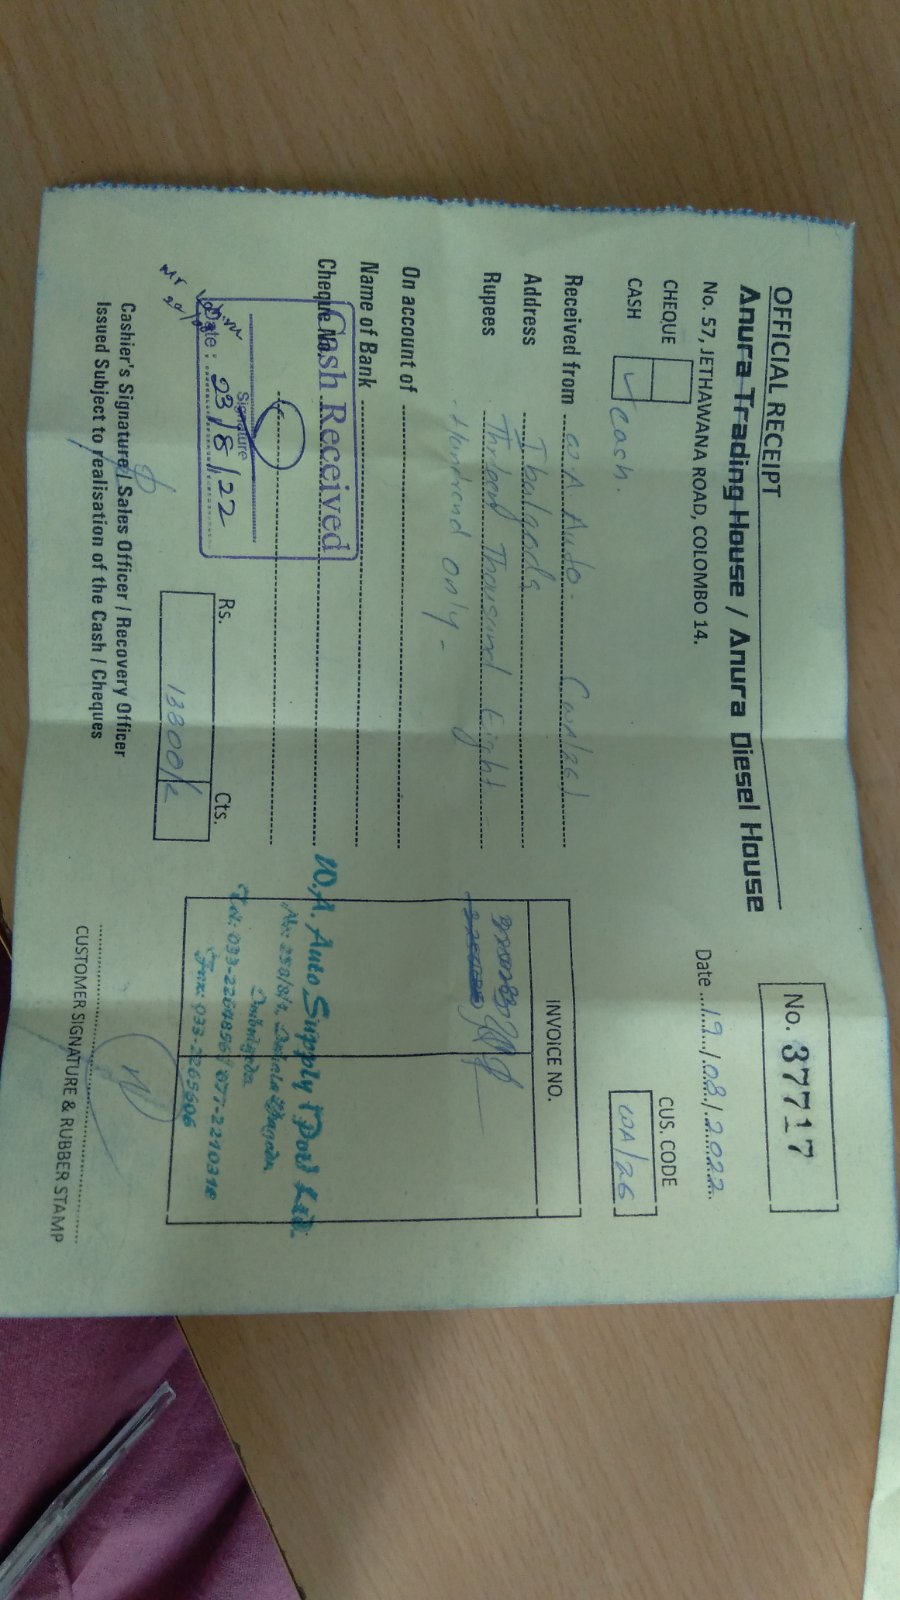 OFFICIAL RECEIPT
Anura Trading House / Anura Diesel House
No. 57, JETHAWANA ROAD, COLOMBO 14.
No. 37717
Date 19/08/2022
CHEQUE
CASH
cash.
CUS. CODE
WA/26
Received from W A Auto.
Address
Rupees Thousand Eight
Hundred only -
On account of
Name of Bank
Cheque No.
INVOICE NO.
Cash Received
Signature
Date : 23/8/22
Rs. Cts.
13800/
W.A. Auto Supply (Pvt) Ltd.
Tel: 033-2264856 / 077-2210318
Fax: 033-2265606
Cashier's Signature / Sales Officer / Recovery Officer
Issued Subject to realisation of the Cash / Cheques
CUSTOMER SIGNATURE & RUBBER STAMP